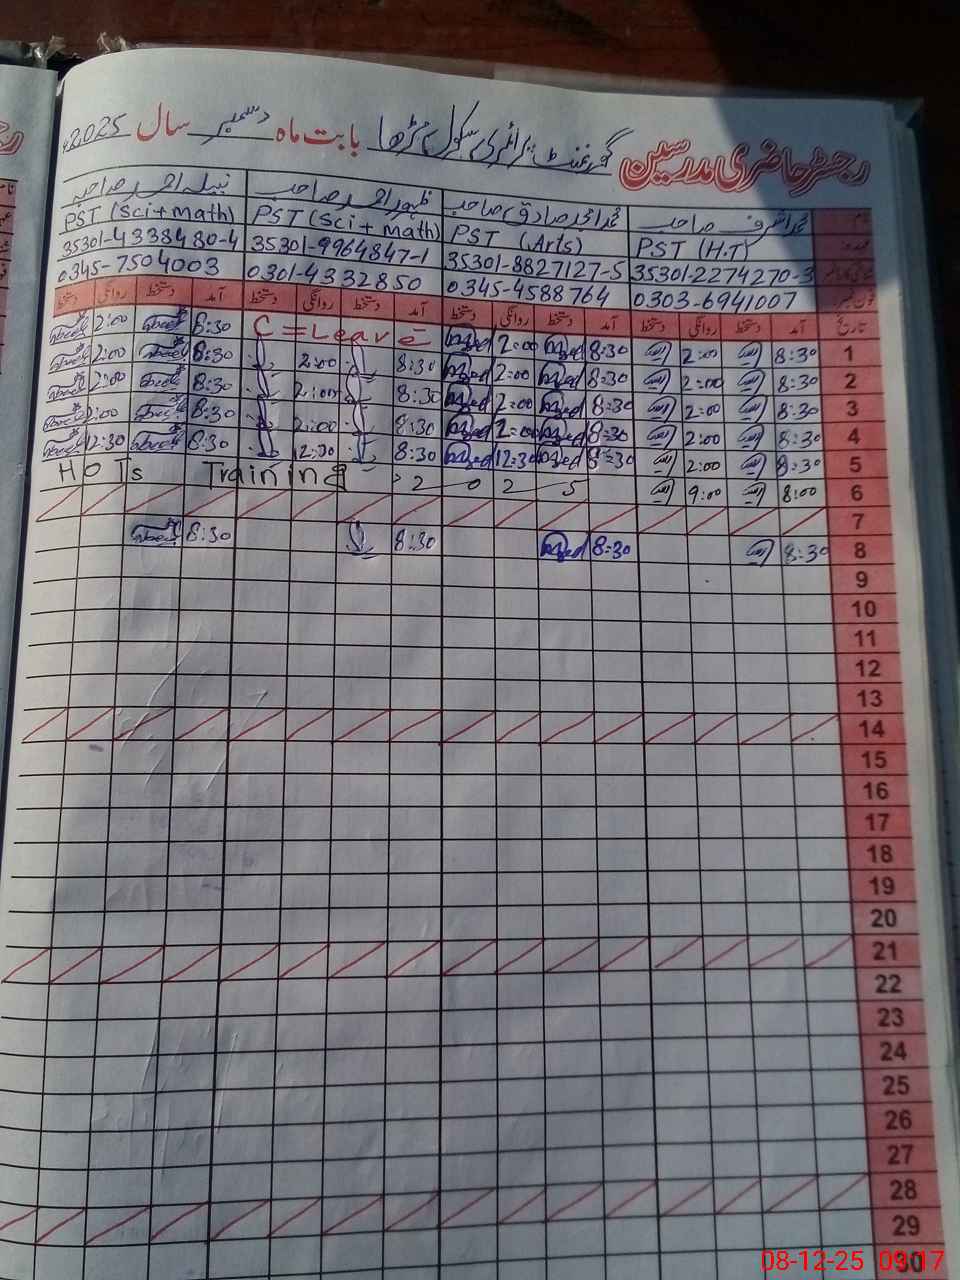 رجسٹر حاضری مدرسین گورنمنٹ پرائمری سکول مڑھا بابت ماہ دسمبر سال 2025ء
محمد اشرف صاحب محمد امجد صادق صاحب ظہور احمد صاحب نبیلہ احمد صاحبہ
PST (Sci+math) PST (Sci + math) PST (Arts) PST (H.T)
35301-4338480-4 35301-9964847-1 35301-8827127-5 35301-2274270-3
0345-7504003 0301-4332850 0345-4588764 0303-6941007
تاریخ آمد دستخط روانگی دستخط آمد دستخط روانگی دستخط آمد دستخط روانگی دستخط آمد دستخط روانگی دستخط
2:00 8:30 C = Leave 2:00 8:30 2:00 8:30 1
2:00 8:30 2:00 8:30 2:00 8:30 2:00 8:30 2
2:00 8:30 2:00 8:30 2:00 8:30 2:00 8:30 3
2:00 8:30 2:00 8:30 2:00 8:30 2:00 8:30 4
12:30 8:30 12:30 8:30 12:30 8:30 2:00 8:30 5
HOTs Training 2025 9:00 8:00 6
7
8:30 8:30 8:30 8:30 8
9
10
11
12
13
14
15
16
17
18
19
20
21
22
23
24
25
26
27
28
29
30
08-12-25 09:17